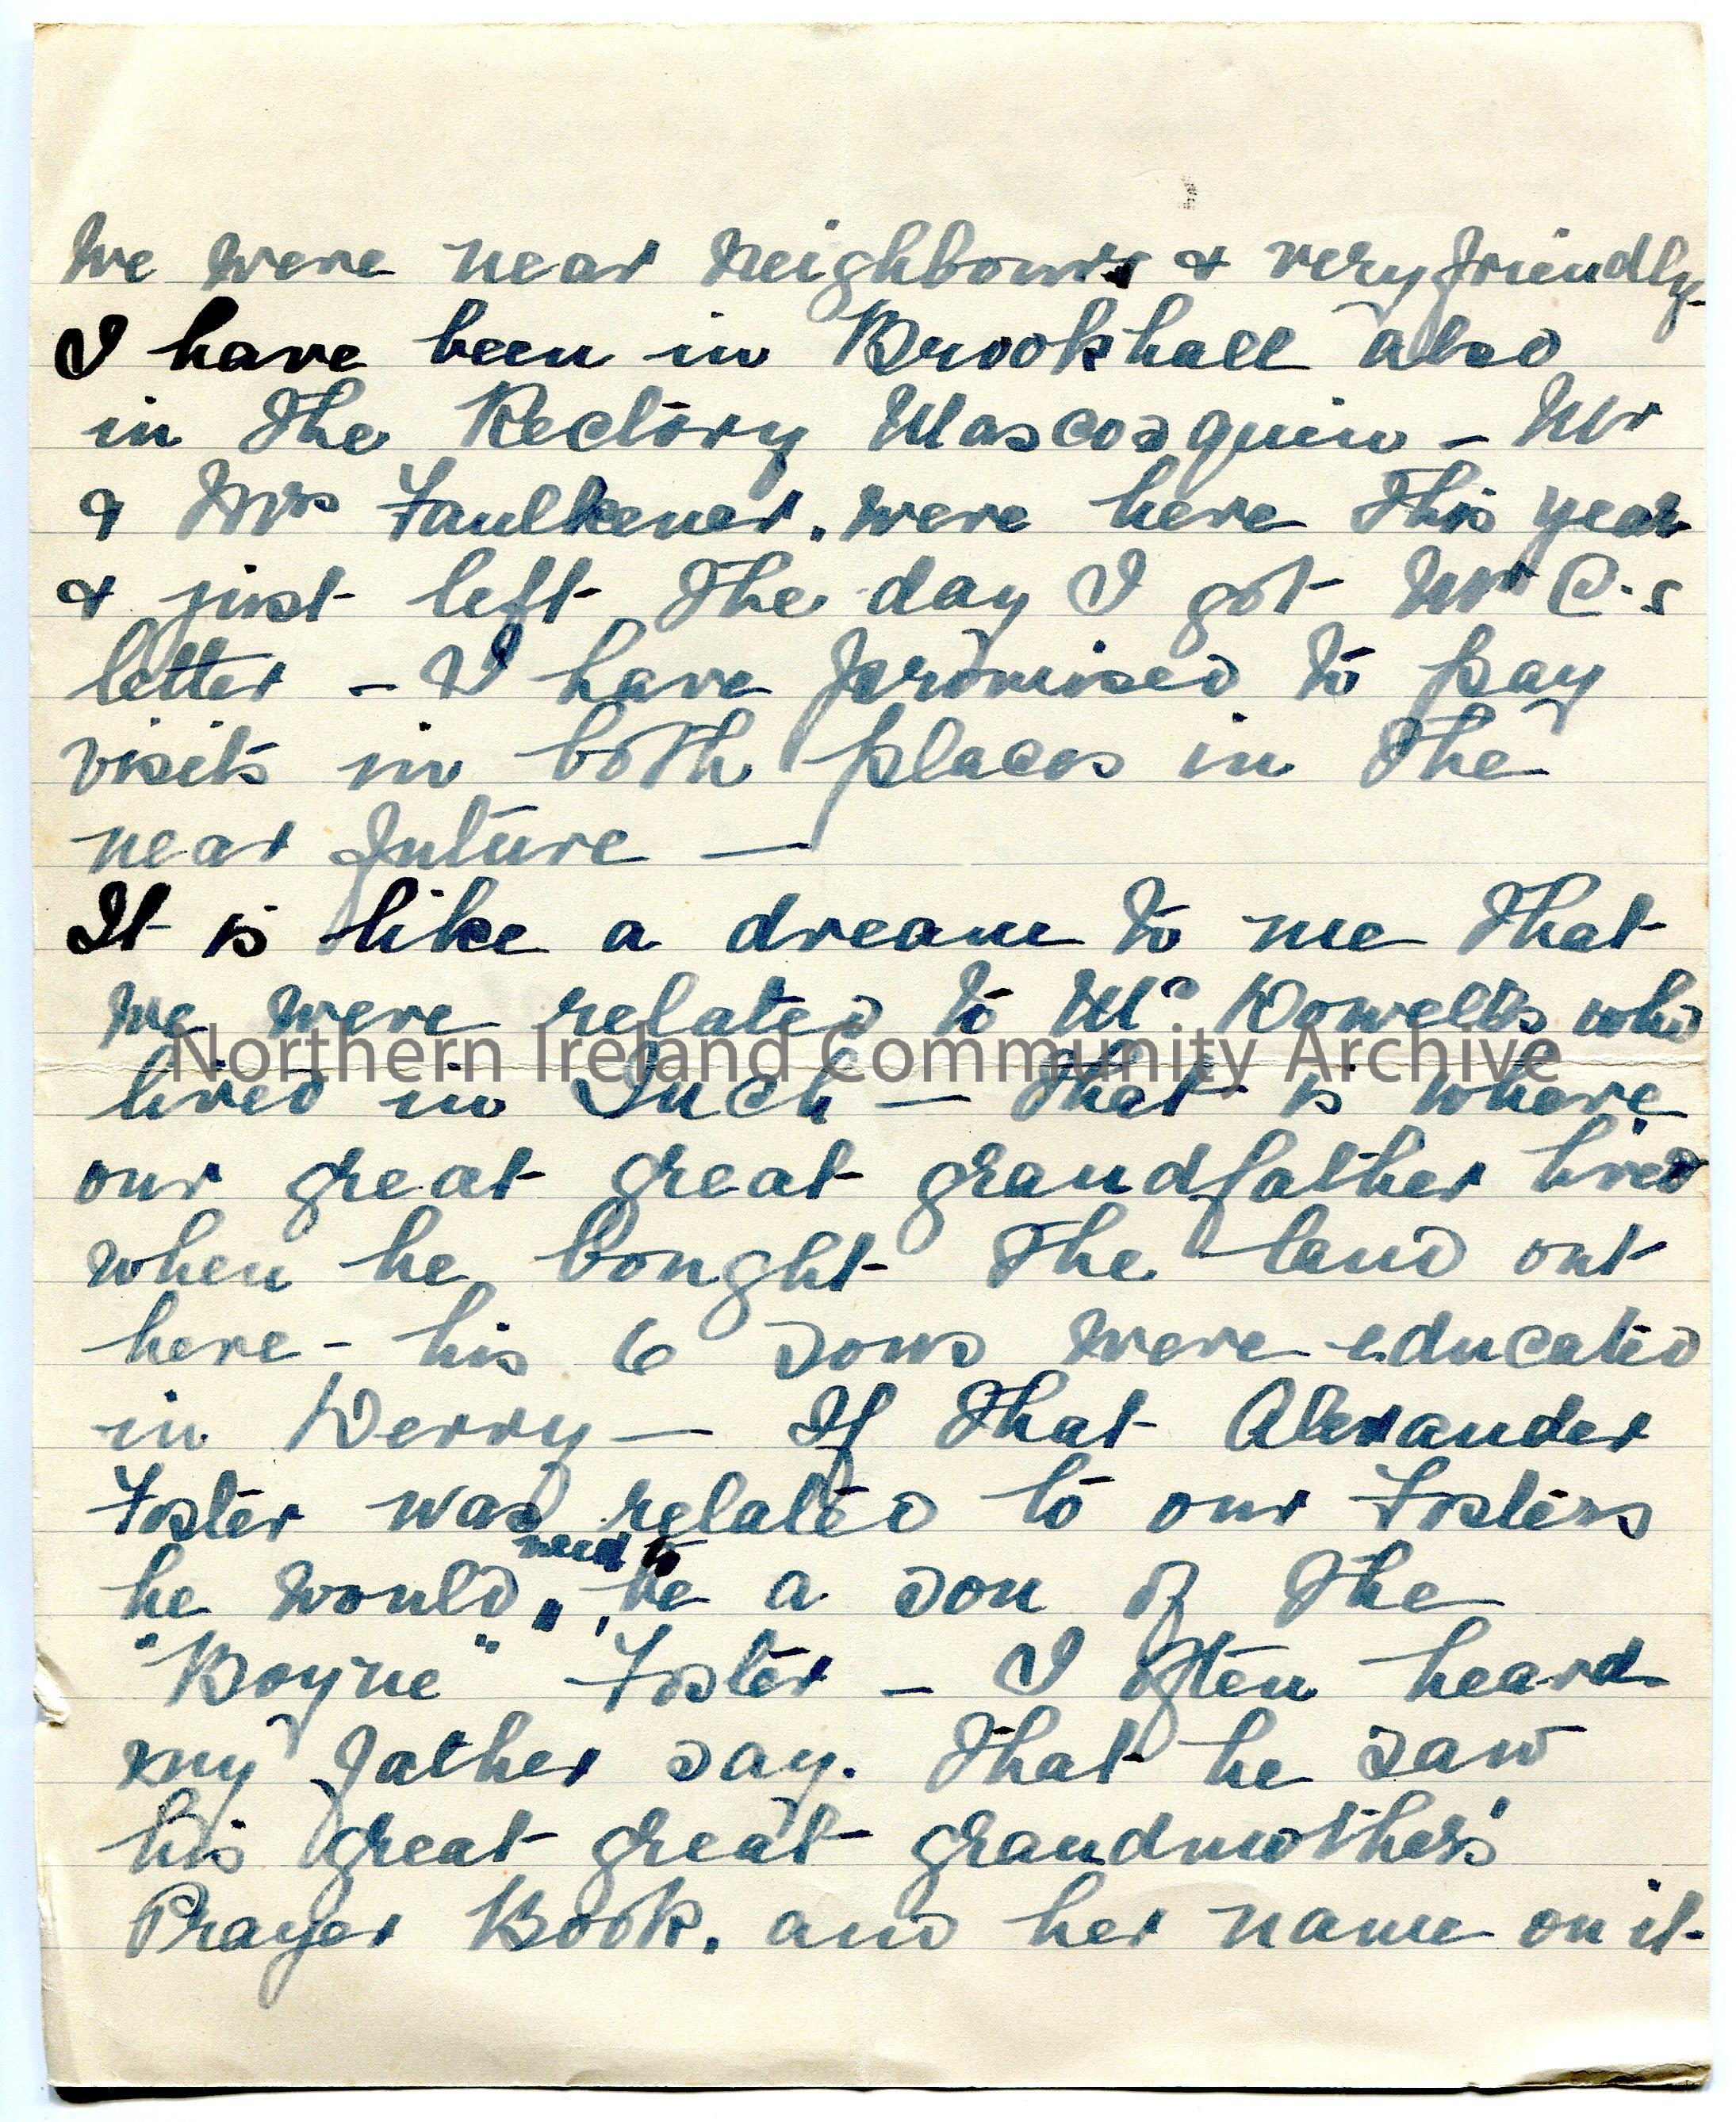 We were near neighbours & very friendly
I have been in Brookhall also
in the Rectory Mascosquin – Mr
& Mrs Faulkener. were here this year
& just left the day I got Mr C.s
letter – I have promised to pay
visits in both places in the
near future —
It is like a dream to me that
we were related to Mc Dowells who
Northern Ireland Community Archive
lived in Inch — that is where
our great great grandfather lived
when he bought the land out
here – his 6 sons were educated
in Derry — If that Alexander
Foster was related to our Fosters
need to
he would " be a son of the
"Boyne" Foster – I often heard
my father say. that he saw
his great great grandmother's
Prayer Book. and her name on it-